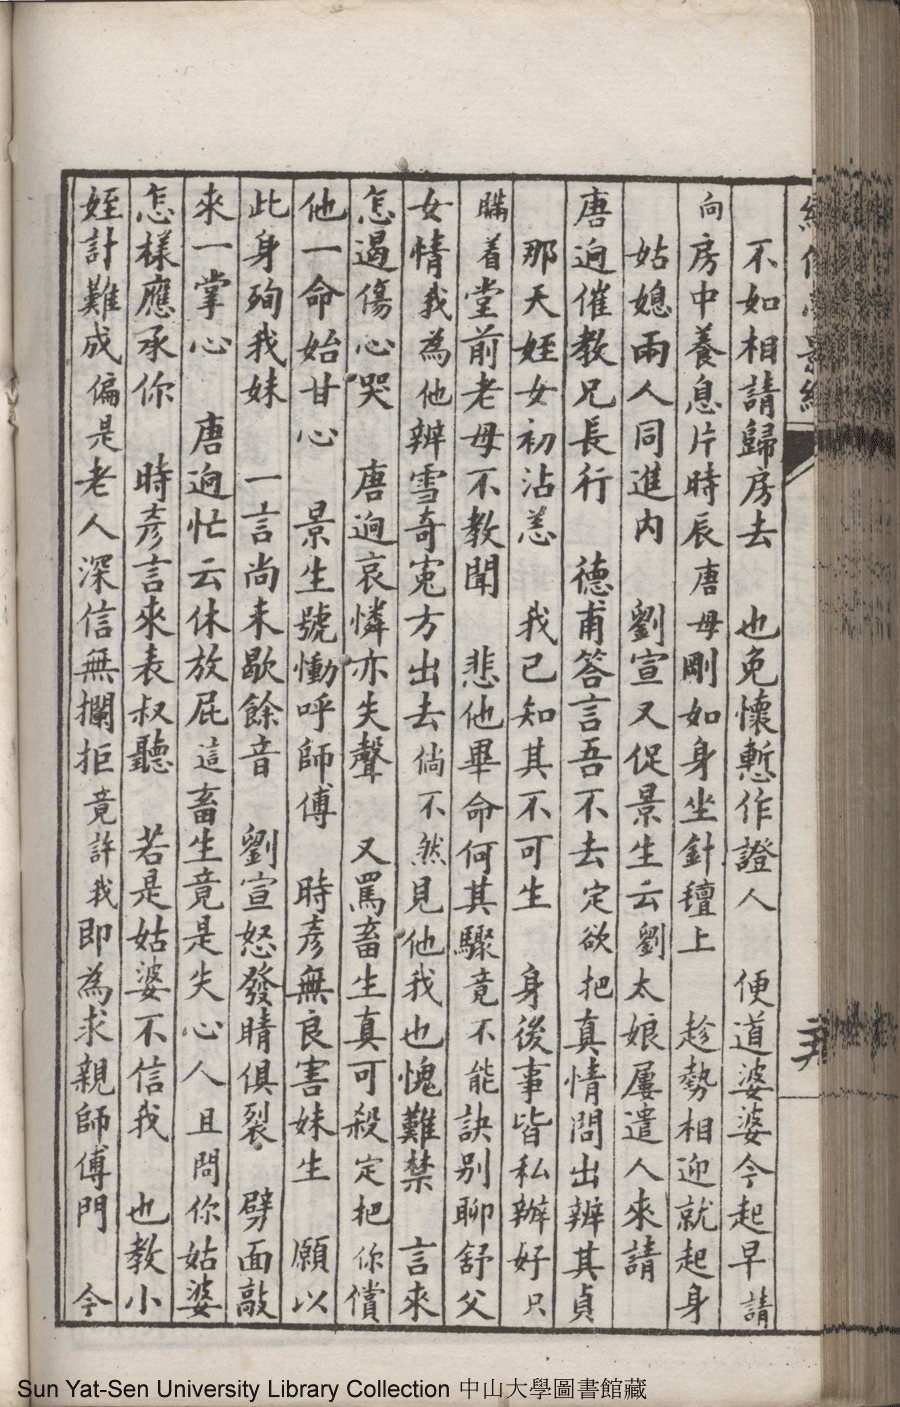 不如相請歸房去　也免懷慙作證人　便道婆婆今起早請
向房中養息片時辰唐母剛如身坐針氊上　趁勢相迎就起身
姑媳兩人同進內　劉宣又促景生云劉太娘屢遣人來請
唐逈催教兄長行　德甫答言吾不去定欲把真情問出辨其貞
那天姪女初沾恙　我已知其不可生　身後事皆私辦好只
瞞着堂前老母不教聞　悲他畢命何其驟竟不能訣別聊舒父
女情我為他辨雪奇寃方出去倘不然見他我也愧難禁　言來
怎遏傷心哭　唐逈哀憐亦失聲　又罵畜生真可殺定把你償
他一命始甘心　景生號慟呼師傅　時彥無良害妹生　願以
此身殉我妹　一言尚未歇餘音　劉宣怒發睛俱裂　劈面敲
來一掌心　唐逈忙云休放屁這畜生竟是失心人且問你姑婆
怎樣應承你　時彥言來表叔聽　若是姑婆不信我　也教小
姪計難成偏是老人深信無攔拒竟許我即為求親師傅門　今
Sun Yat-Sen University Library Collection 中山大學圖書館藏